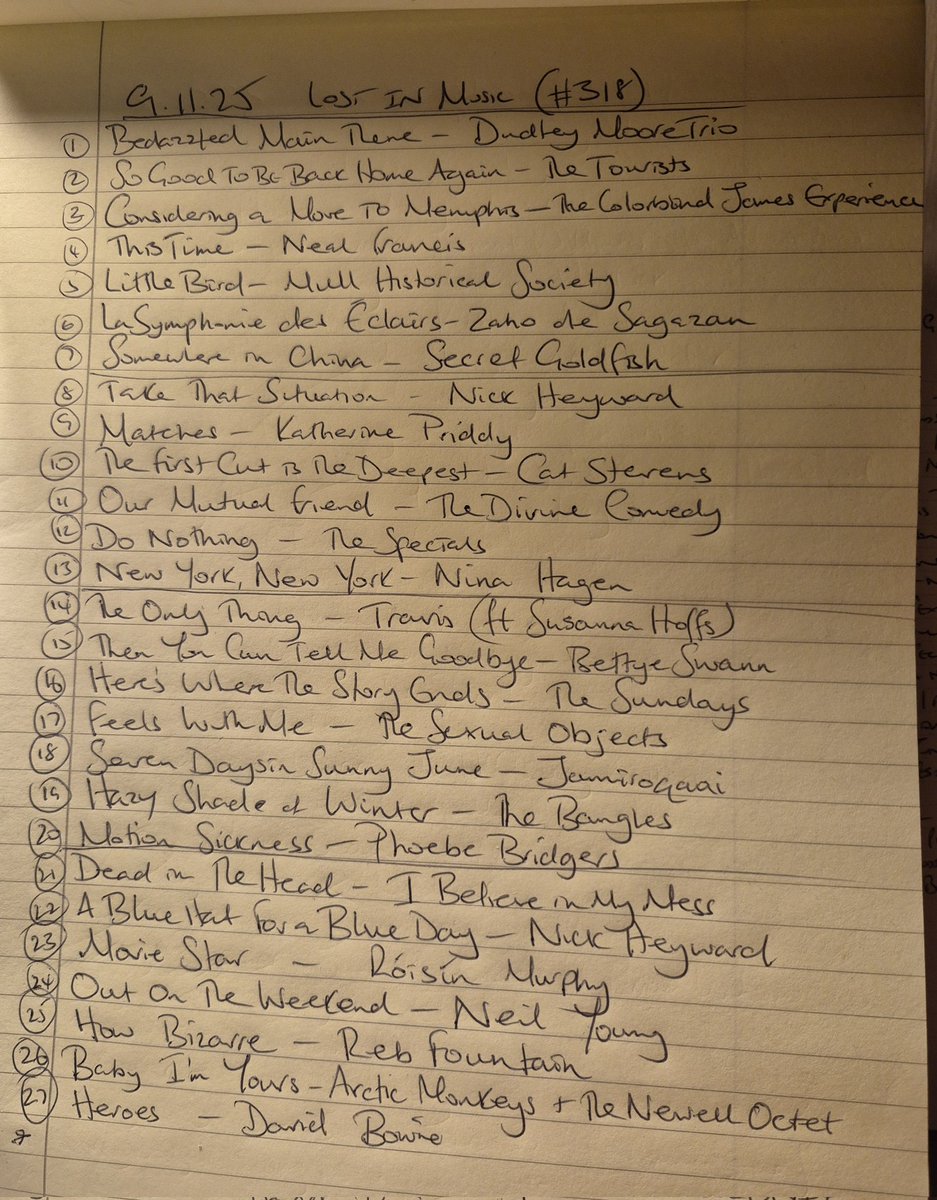 9.11.25 Lost In Music (#318)
① Bedazzled Main Theme - Dudley Moore Trio
② So Good To Be Back Home Again - The Tourists
③ Considering a Move To Memphis - The Colorblind James Experience
④ This Time - Neal Francis
⑤ Little Bird - Mull Historical Society
⑥ La Symphonie des Éclairs - Zaho de Sagazan
⑦ Somewhere in China - Secret Goldfish
⑧ Take That Situation - Nick Heyward
⑨ Matches - Katherine Priddy
⑩ The First Cut is The Deepest - Cat Stevens
⑪ Our Mutual Friend - The Divine Comedy
⑫ Do Nothing - The Specials
⑬ New York, New York - Nina Hagen
⑭ The Only Thing - Travis (ft Susanna Hoffs)
⑮ Then You Can Tell Me Goodbye - Bettye Swann
⑯ Here's Where The Story Ends - The Sundays
⑰ Feels With Me - The Sexual Objects
⑱ Seven Days in Sunny June - Jamiroquai
⑲ Hazy Shade of Winter - The Bangles
⑳ Motion Sickness - Phoebe Bridgers
㉑ Dead in The Head - I Believe in My Mess
㉒ A Blue Hat For a Blue Day - Nick Heyward
㉓ Movie Star - Róisín Murphy
㉔ Out On The Weekend - Neil Young
㉕ How Bizarre - Reb Fountain
㉖ Baby I'm Yours - Arctic Monkeys + The Newell Octet
㉗ Heroes - David Bowie